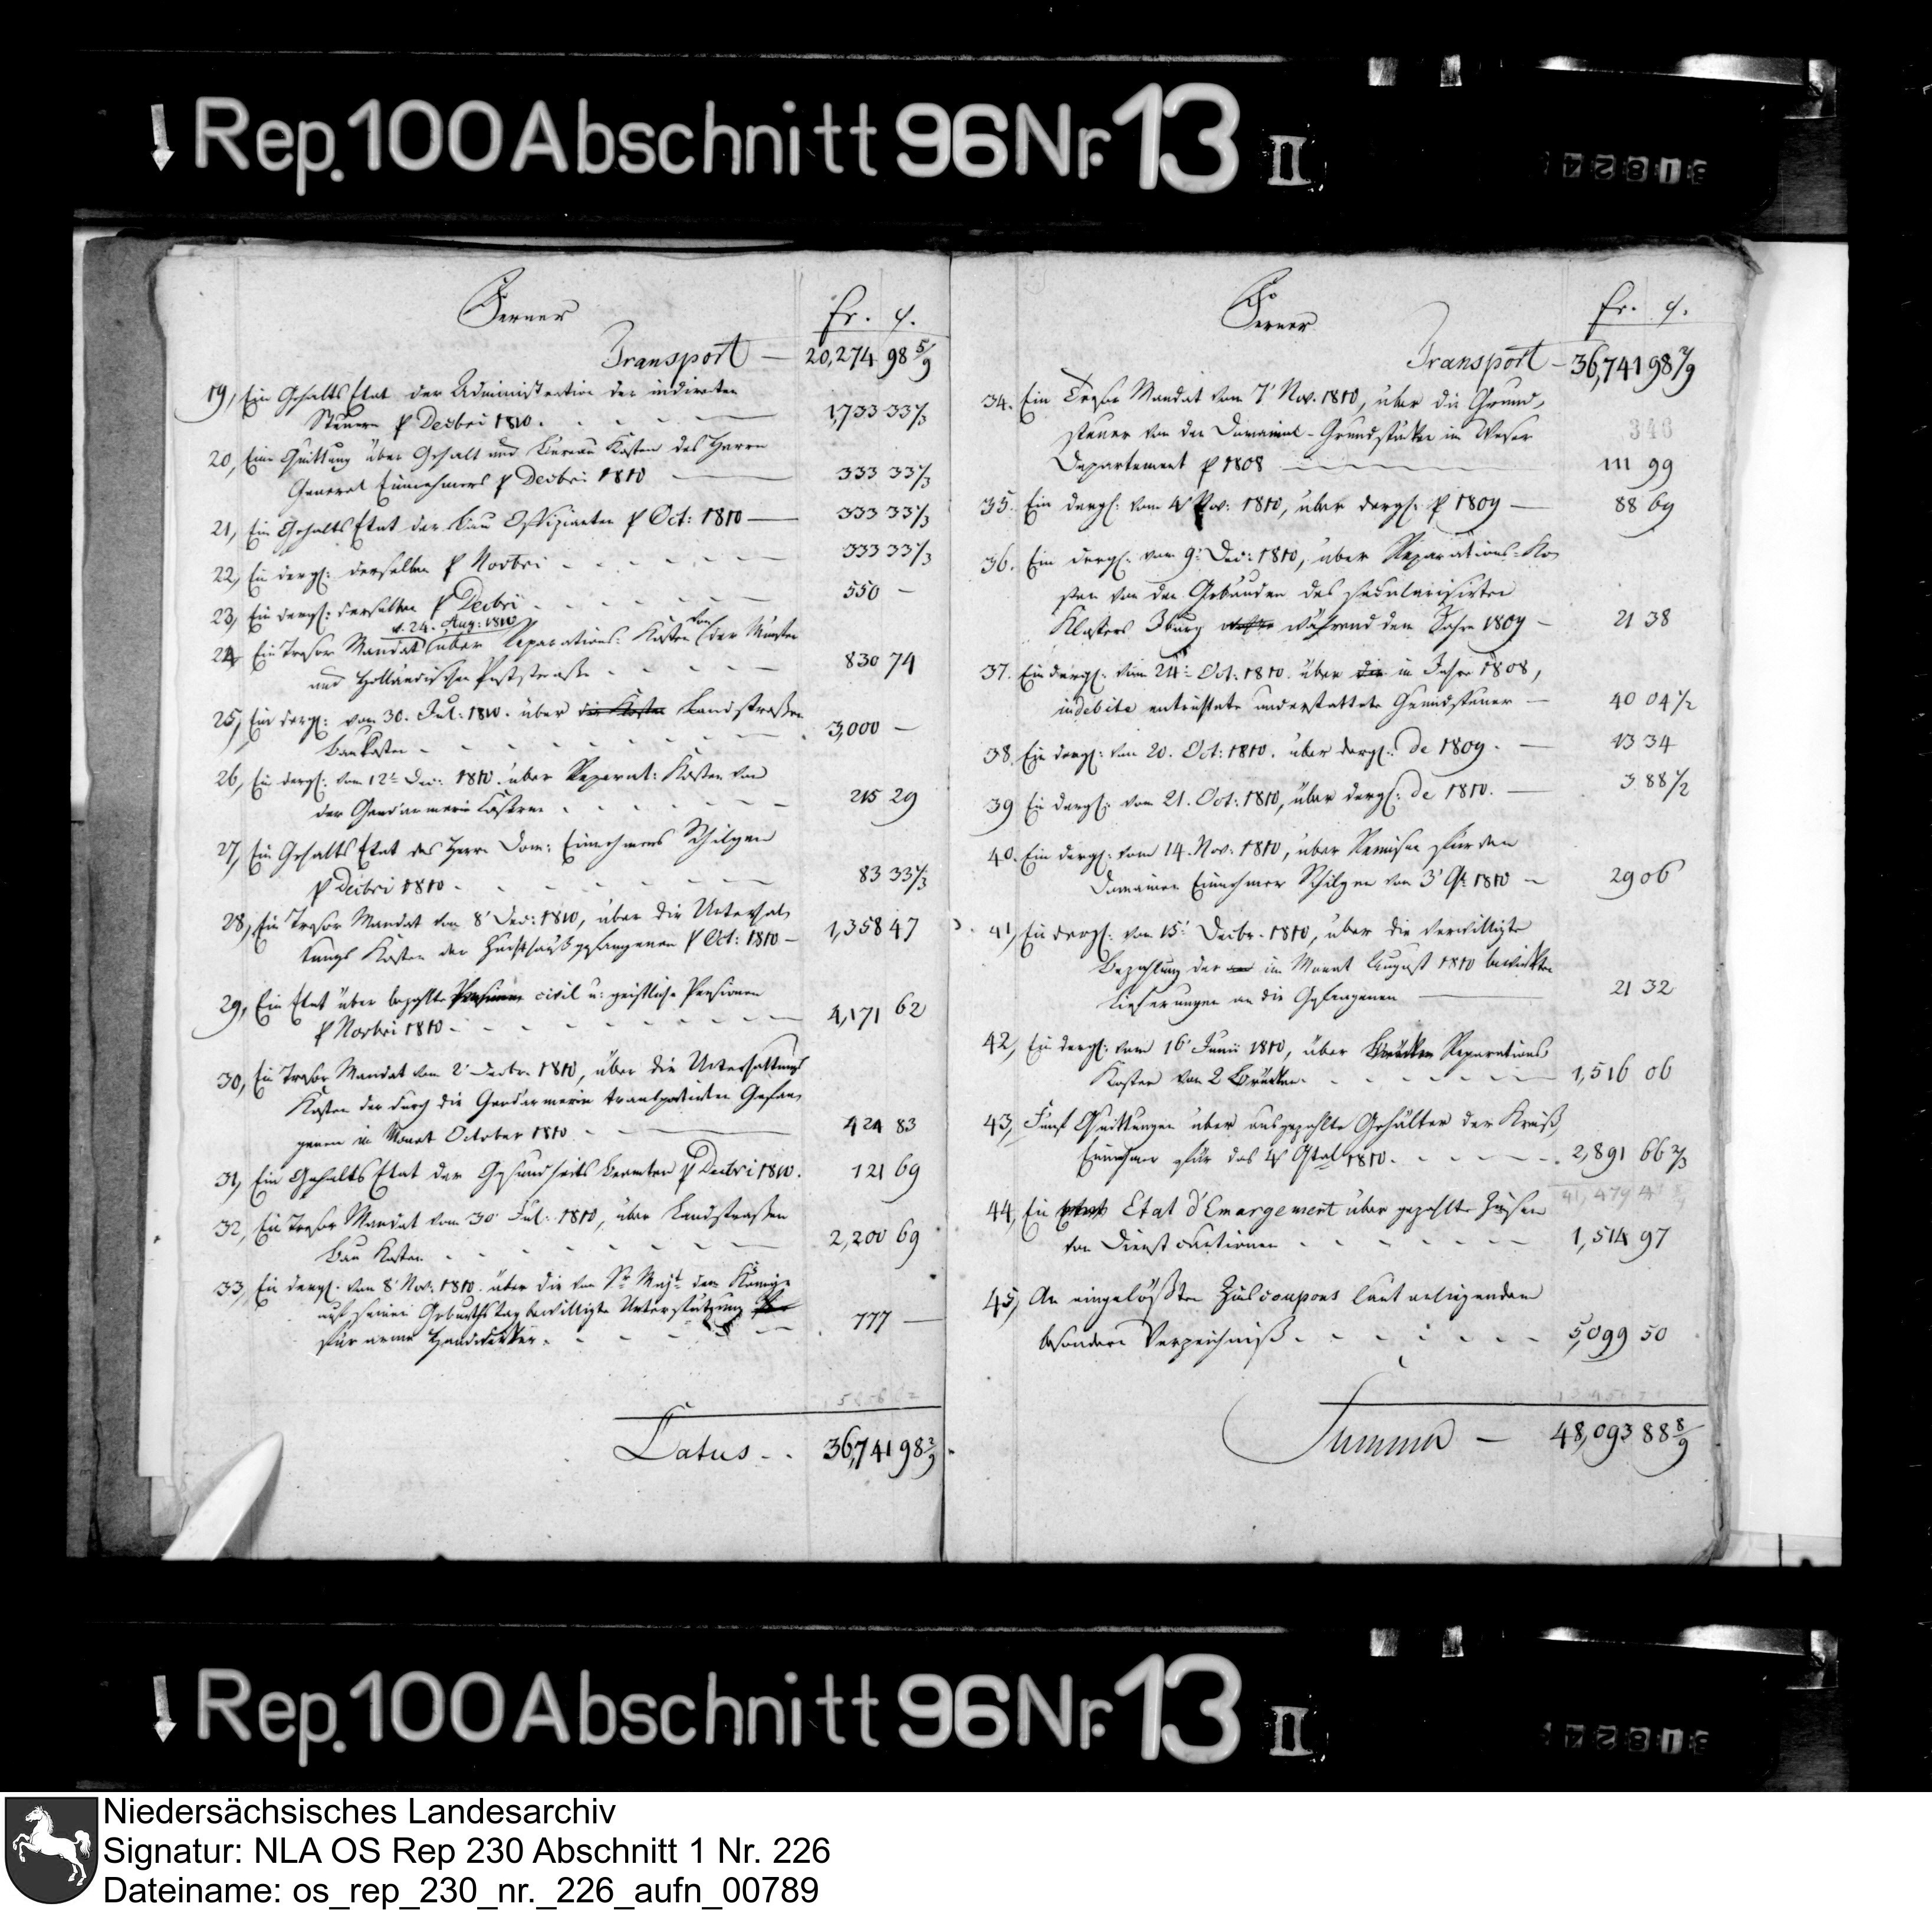 Rep. 100 Abschnitt 96 Nr. 13 II
31824
Ferner
Fr. C.
Transport — 20,274 98 5/9
19, Ein Gehalts Etat der Administration der indirecten
Steuern p Decbri 1810. 1,733 33 1/3
20, Eine Quittung über Gehalt und Bureau Kosten des Herrn
General Einnehmers p Decbri 1810 — 333 33 1/3
21, Ein Gehalts Etat der Bau Offizianten p Oct: 1810 — 333 33 1/3
22, Ein dergl: derselben p Novbri - - - 333 33 1/3
23, Ein dergl: derselben p Decbri - - - 550 —
v. 24. Aug: 1810
24, Ein Tresor Mandat über Reparations-Kosten von der Münster
und Holländischen Poststraße - - - 830 74
25, Ein dergl: vom 30. Jul: 1810. über die Kosten Landstraßen
Baukosten - - - 3,000 —
26, Ein dergl: vom 12t Dec: 1810. über Reparat: Kosten von
der Gend'armerie Caserne - - - 215 29
27, Ein Gehalts Etat des Herrn Dom: Einnehmers Schilgen
p Decbri 1810 - - - 83 33 1/3
28, Ein Tresor Mandat vom 8' Dec: 1810, über die Unterhal-
tungs Kosten der Zuchthausgefangenen p Oct: 1810 — 1,358 47
29, Ein Etat über bezahlte Pensionen civil u: geistliche Pensionen
p Novbri 1810 - - - 4,171 62
30, Ein Tresor Mandat vom 2' Decbr. 1810, über die Unterhaltungs
Kosten der durch die Gendarmerie transportirten Gefan-
genen im Monat October 1810 — 424 83
31, Ein Gehalts Etat der Gesundheits Beamten p Decbri 1810. 121 69
32, Ein Tresor Mandat vom 30' Jul: 1810, über Landstraßen
Bau Kosten - - - 2,200 69
33, Ein dergl. vom 8' Nov: 1810. über die von Sr. Majt. dem Könige
auf seinen Geburthstag bewilligte Unterstützung
für arme Handwerker. - - - 777 —
Latus - . 36,741 98 2/9
Ferner
Fr. C.
Transport — 36,741 98 2/9
34. Ein Tresor Mandat vom 7' Nov. 1810, über die Grund-
steuer von den Domainal-Grundstücken im Weser
340
Departement p 1808 — 111 99
35. Ein dergl: vom 4' Nov: 1810, über dergl: p 1809 — 88 69
36. Ein dergl: vom 9: Dec: 1810, über Reparations-Ko-
sten von den Gebäuden des secularisirten
Klosters Iburg während dem Jahre 1809 — 21 38
37. Ein dergl: vom 24t Oct: 1810. über die im Jahre 1808,
indebite entrichtete und erstattete Grundsteuer — 40 04 1/2
38. Ein dergl: vom 20. Oct: 1810. über dergl: de 1809. — 13 34
39 Ein dergl: vom 21. Oct: 1810, über dergl: de 1810. — 3 88 1/2
40. Ein dergl: vom 14. Nov: 1810, über Remisen für den
Domainen Einnehmer Schilgen vom 3' Qt. 1810 — 29 06
41, Ein dergl: vom 15' Decbr. 1810, über die verwilligte
Bezahlung der im Monat August 1810 bewirkten
Lieferungen an die Gefangenen — 21 32
42, Ein dergl: vom 16' Junii 1810, über Brücken Reparations
Kosten von 2 Brücken. - - - 1,516 06
43, Fünf Quittungen über ausgezahlte Gehälter der Kreis-
Einnehmer für das 4' Qtal 1810. - - - 2,891 66 2/3
44, Ein Etat d'Emargement über gezahlte Zinsen
von Dienst cautionen - - - 1,514 97
45, An eingelößten Zinscoupons laut anliegendem
besondern Verzeichniß. - - - 5,099 50
Summa — 48,093 88 8/9
Rep. 100 Abschnitt 96 Nr. 13 II
31824
Niedersächsisches Landesarchiv
Signatur: NLA OS Rep 230 Abschnitt 1 Nr. 226
Dateiname: os_rep_230_nr._226_aufn_00789